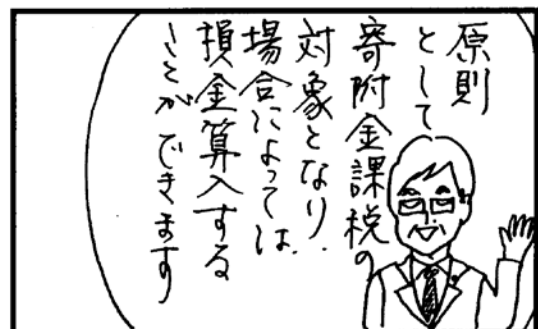 原則
として
寄附金課税の
対象となり、
場合によっては、
損金算入する
ことができます